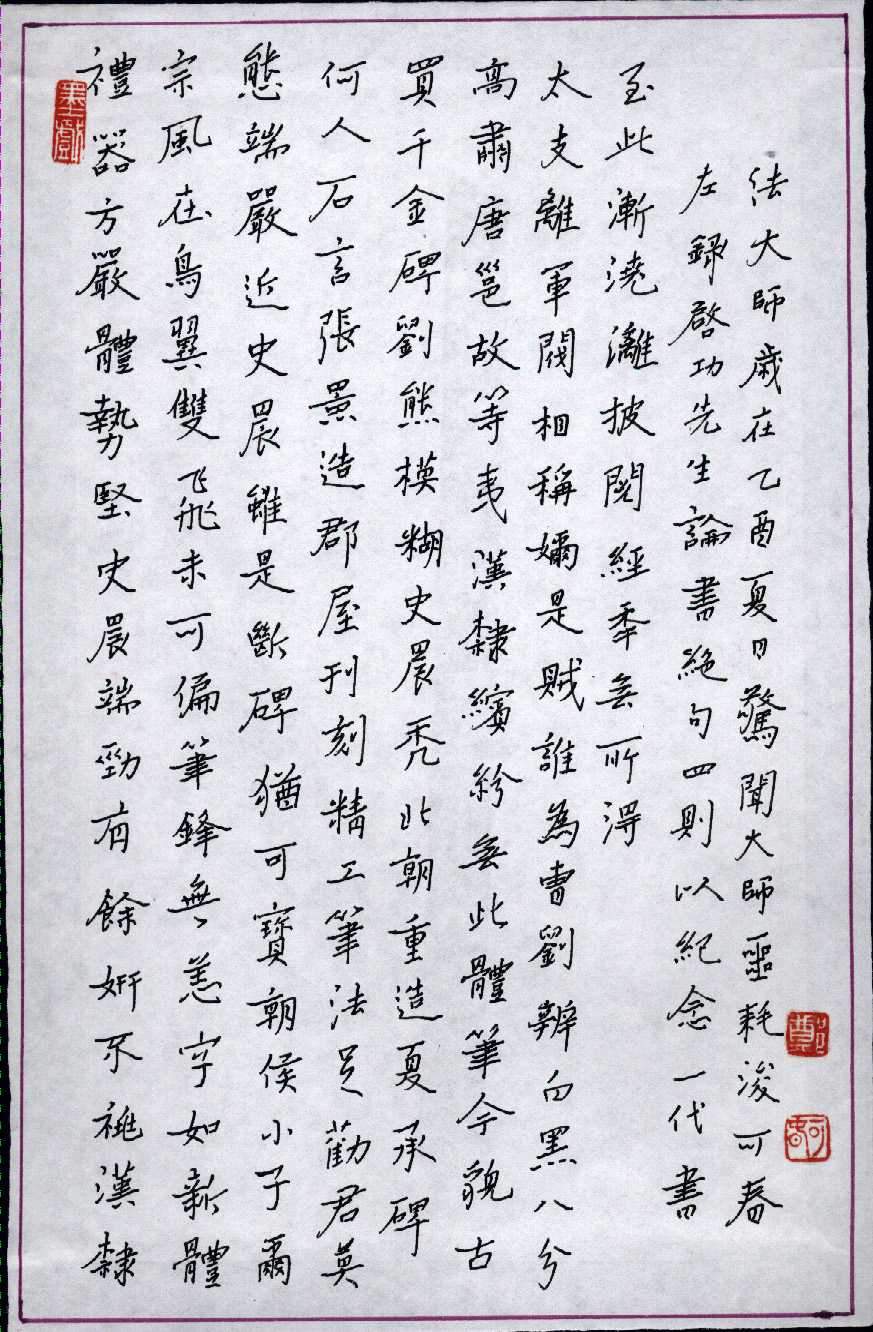 禮器方嚴體勢堅史晨端勁有餘妍不祧漢隸
宗風在鳥翼雙飛未可偏筆鋒無恙字如新體
態端嚴近史晨雖是斷碑猶可寶朝侯小子爾
何人石言張景造郡屋刊刻精工筆法足勸君莫
買千金碑劉熊模糊史晨禿北朝重造夏承碑
高肅唐邕故等夷漢隸繽紛無此體筆今貌古
太支離軍閥相稱嫡是賊誰為曹劉辨白黑八分
至此漸澆灕披閱經年無所得
左錄啓功先生論書絕句四則以紀念一代書
法大師歲在乙酉夏日驚聞大師噩耗浚可
墨戲